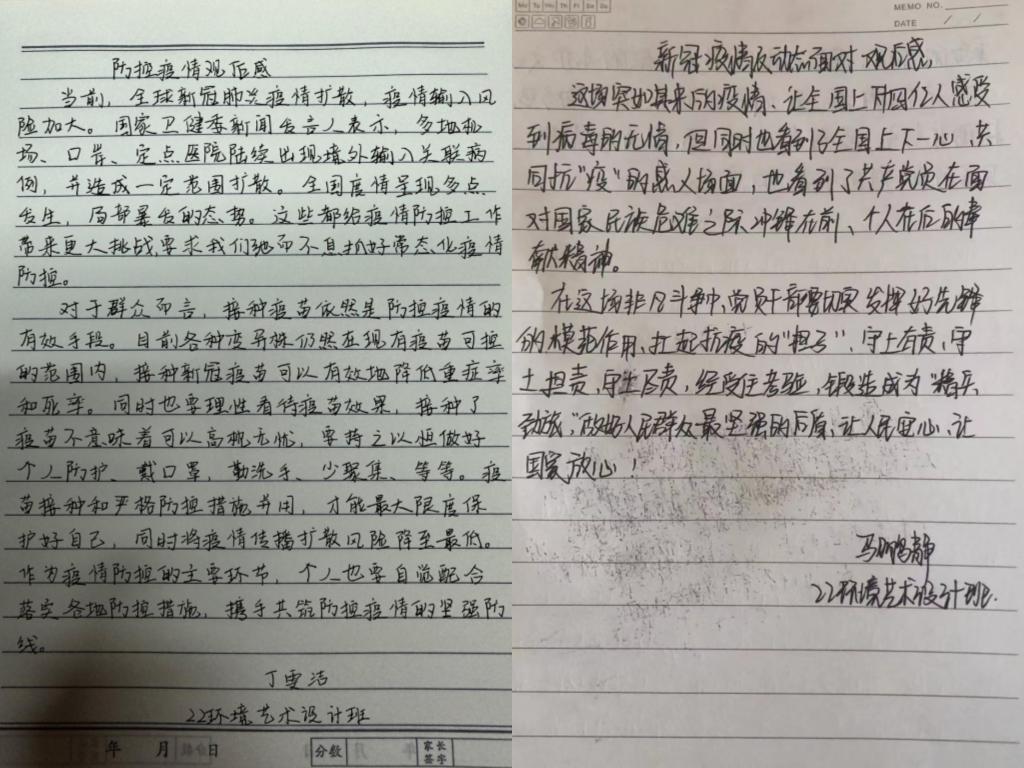 防控疫情观后感
当前，全球新冠肺炎疫情扩散，疫情输入风
险加大。国家卫健委新闻发言人表示，多地机
场、口岸、定点医院陆续出现境外输入关联病
例，并造成一定范围扩散。全国疫情呈现多点
发生，局部暴发的态势。这些都给疫情防控工作
带来更大挑战，要求我们驰而不息抓好常态化疫情
防控。
对于群众而言，接种疫苗依然是防控疫情的
有效手段。目前各种变异株仍然在现有疫苗可控
的范围内，接种新冠疫苗可以有效地降低重症率
和死率。同时也要理性看待疫苗效果，接种了
疫苗不意味着可以高枕无忧，要持之以恒做好
个人防护、戴口罩，勤洗手、少聚集、等等。疫
苗接种和严格防控措施并用，才能最大限度保
护好自己，同时将疫情传播扩散风险降至最低。
作为疫情防控的主要环节，个人也要自觉配合
落实各地防控措施，携手共筑防控疫情的坚强防
线。
丁雪洁
22环境艺术设计班
年 月 日 分数 家长签字
MEMO NO.
DATE / /
Mo Tu We Th Fr Sa Su
新冠疫情动态面对 观后感
这场突如其来的疫情、让全国上下十四亿人感受
到病毒的无情，但同时也看到了全国上下一心、共
同抗"疫"的感人场面，也看到了共产党员在面
对国家民族危难之际冲锋在前、个人在后的奉
献精神。
在这场非凡斗争中，党员干部要切实发挥好先锋
的模范作用、扛起抗疫的"担子"、守土有责、守
土担责、守土尽责，经受住考验，锻造成为"排头
劲旅"，做好人民群众最坚强的后盾、让人民安心、让
国家放心！
马鹏静
22环境艺术设计班.